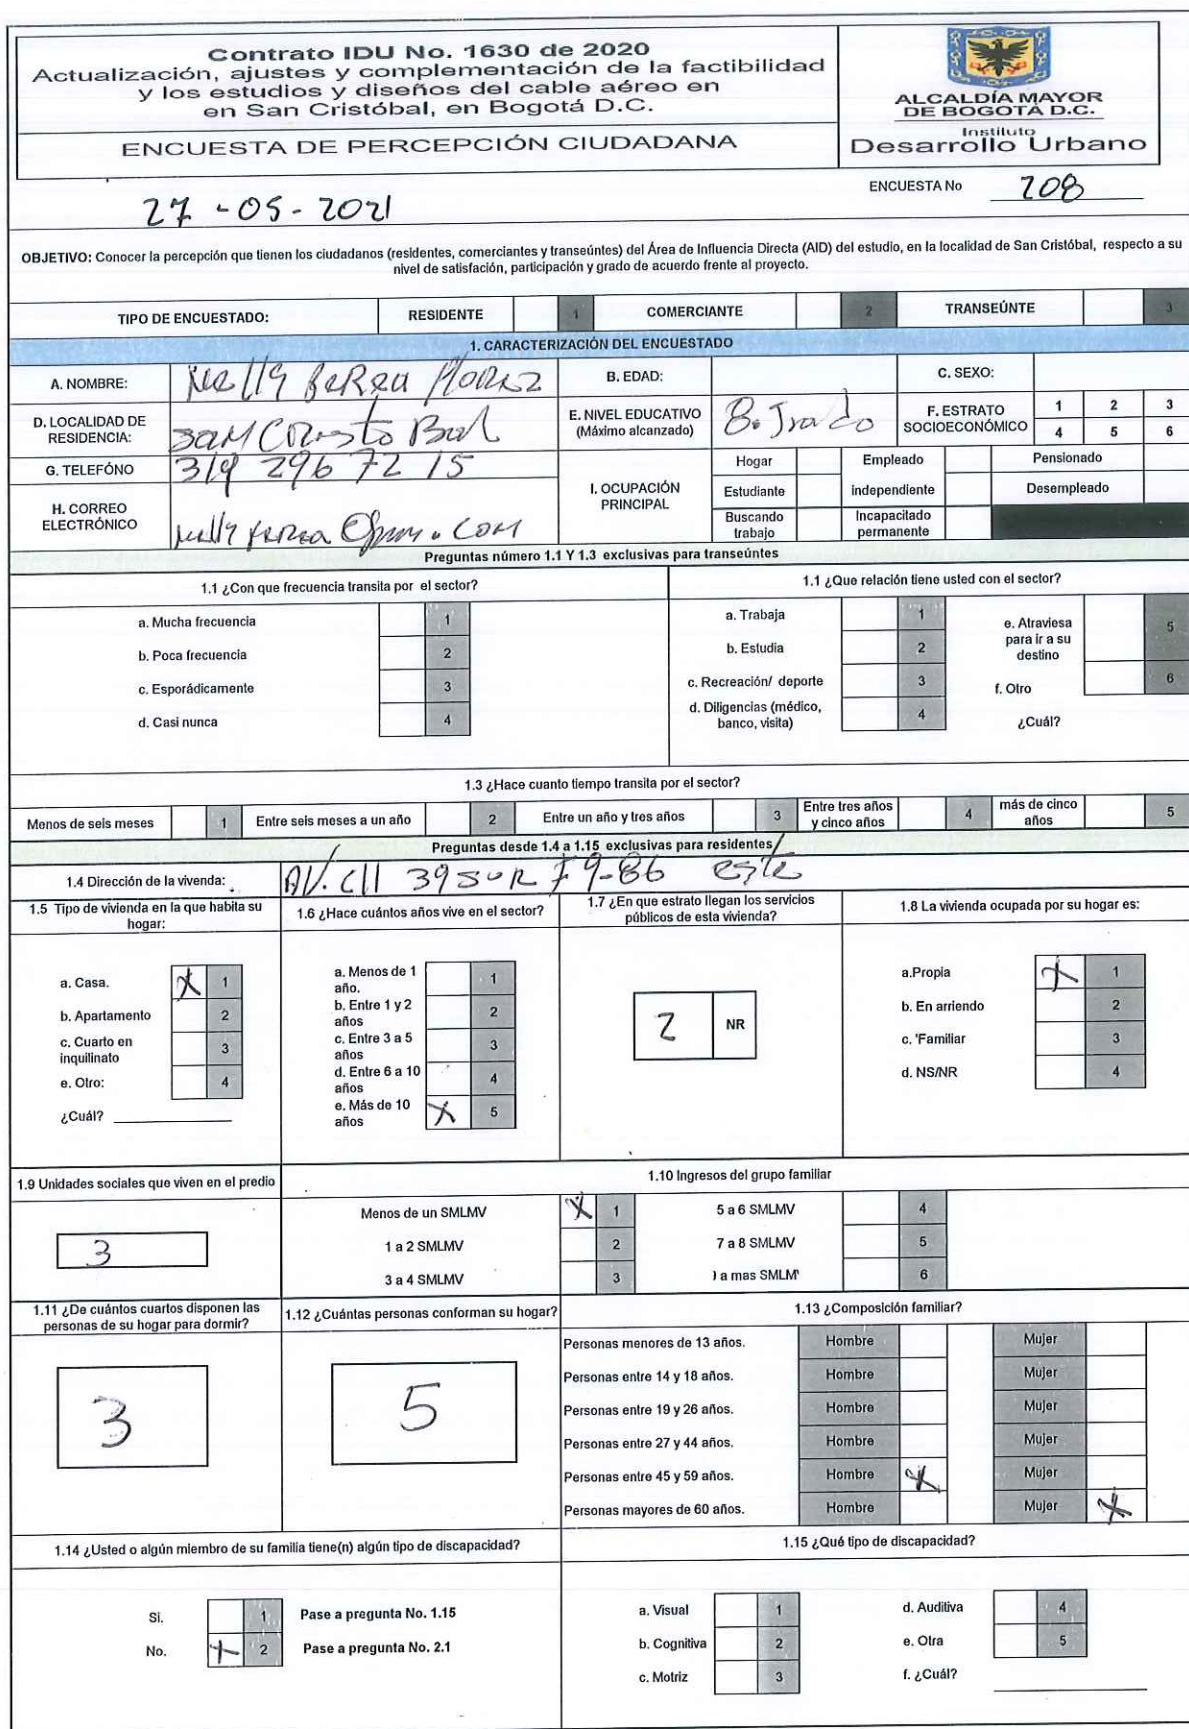 Contrato IDU No. 1630 de 2020
Actualización, ajustes y complementación de la factibilidad
y los estudios y diseños del cable aéreo en
en San Cristóbal, en Bogotá D.C.
ENCUESTA DE PERCEPCIÓN CIUDADANA
ALCALDÍA MAYOR
DE BOGOTÁ D.C.
Instituto
Desarrollo Urbano
ENCUESTA No 208
27-05-2021
OBJETIVO: Conocer la percepción que tienen los ciudadanos (residentes, comerciantes y transeúntes) del Área de Influencia Directa (AID) del estudio, en la localidad de San Cristóbal, respecto a su
nivel de satisfacción, participación y grado de acuerdo frente al proyecto.
TIPO DE ENCUESTADO: RESIDENTE 1 COMERCIANTE 2 TRANSEÚNTE 3
1. CARACTERIZACIÓN DEL ENCUESTADO
A. NOMBRE: Nelly
B. EDAD:
C. SEXO:
D. LOCALIDAD DE
RESIDENCIA:
San Cristo Bal
E. NIVEL EDUCATIVO
(Máximo alcanzado)
8.
F. ESTRATO
SOCIOECONÓMICO
1 2 3
4 5 6
G. TELEFÓNO 319 296 72 15
H. CORREO
ELECTRÓNICO
I. OCUPACIÓN
PRINCIPAL
Hogar Empleado Pensionado
Estudiante independiente Desempleado
Buscando
trabajo
Incapacitado
permanente
Preguntas número 1.1 Y 1.3 exclusivas para transeúntes
1.1 ¿Con que frecuencia transita por el sector?
a. Mucha frecuencia 1
b. Poca frecuencia 2
c. Esporádicamente 3
d. Casi nunca 4
1.1 ¿Que relación tiene usted con el sector?
a. Trabaja 1
b. Estudia 2
c. Recreación/ deporte 3
d. Diligencias (médico,
banco, visita) 4
e. Atraviesa
para ir a su
destino 5
f. Otro 6
¿Cuál?
1.3 ¿Hace cuanto tiempo transita por el sector?
Menos de seis meses 1 Entre seis meses a un año 2 Entre un año y tres años 3 Entre tres años
y cinco años 4 más de cinco
años 5
Preguntas desde 1.4 a 1.15 exclusivas para residentes
1.4 Dirección de la vivenda: AV. Cll 39 SUR 79-86 este
1.5 Tipo de vivienda en la que habita su
hogar:
a. Casa. X 1
b. Apartamento 2
c. Cuarto en
inquilinato 3
e. Otro: 4
¿Cuál?
1.6 ¿Hace cuántos años vive en el sector?
a. Menos de 1
año. 1
b. Entre 1 y 2
años 2
c. Entre 3 a 5
años 3
d. Entre 6 a 10
años 4
e. Más de 10
años X 5
1.7 ¿En que estrato llegan los servicios
públicos de esta vivienda?
2 NR
1.8 La vivienda ocupada por su hogar es:
a.Propia X 1
b. En arriendo 2
c. 'Familiar 3
d. NS/NR 4
1.9 Unidades sociales que viven en el predio
3
1.10 Ingresos del grupo familiar
Menos de un SMLMV X 1 5 a 6 SMLMV 4
1 a 2 SMLMV 2 7 a 8 SMLMV 5
3 a 4 SMLMV 3 a mas SMLM 6
1.11 ¿De cuántos cuartos disponen las
personas de su hogar para dormir?
3
1.12 ¿Cuántas personas conforman su hogar?
5
1.13 ¿Composición familiar?
Personas menores de 13 años. Hombre Mujer
Personas entre 14 y 18 años. Hombre Mujer
Personas entre 19 y 26 años. Hombre Mujer
Personas entre 27 y 44 años. Hombre Mujer
Personas entre 45 y 59 años. Hombre X Mujer
Personas mayores de 60 años. Hombre Mujer X
1.14 ¿Usted o algún miembro de su familia tiene(n) algún tipo de discapacidad?
Si. 1 Pase a pregunta No. 1.15
No. X 2 Pase a pregunta No. 2.1
1.15 ¿Qué tipo de discapacidad?
a. Visual 1
b. Cognitiva 2
c. Motriz 3
d. Auditiva 4
e. Otra 5
f. ¿Cuál?